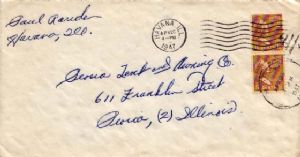 Saul Rander
Havana, Ill.
HAVANA ILL.
4-PM
1947
Peoria Tent and Awning Co.
611 Franklin Street
Peoria, (2) Illinois.